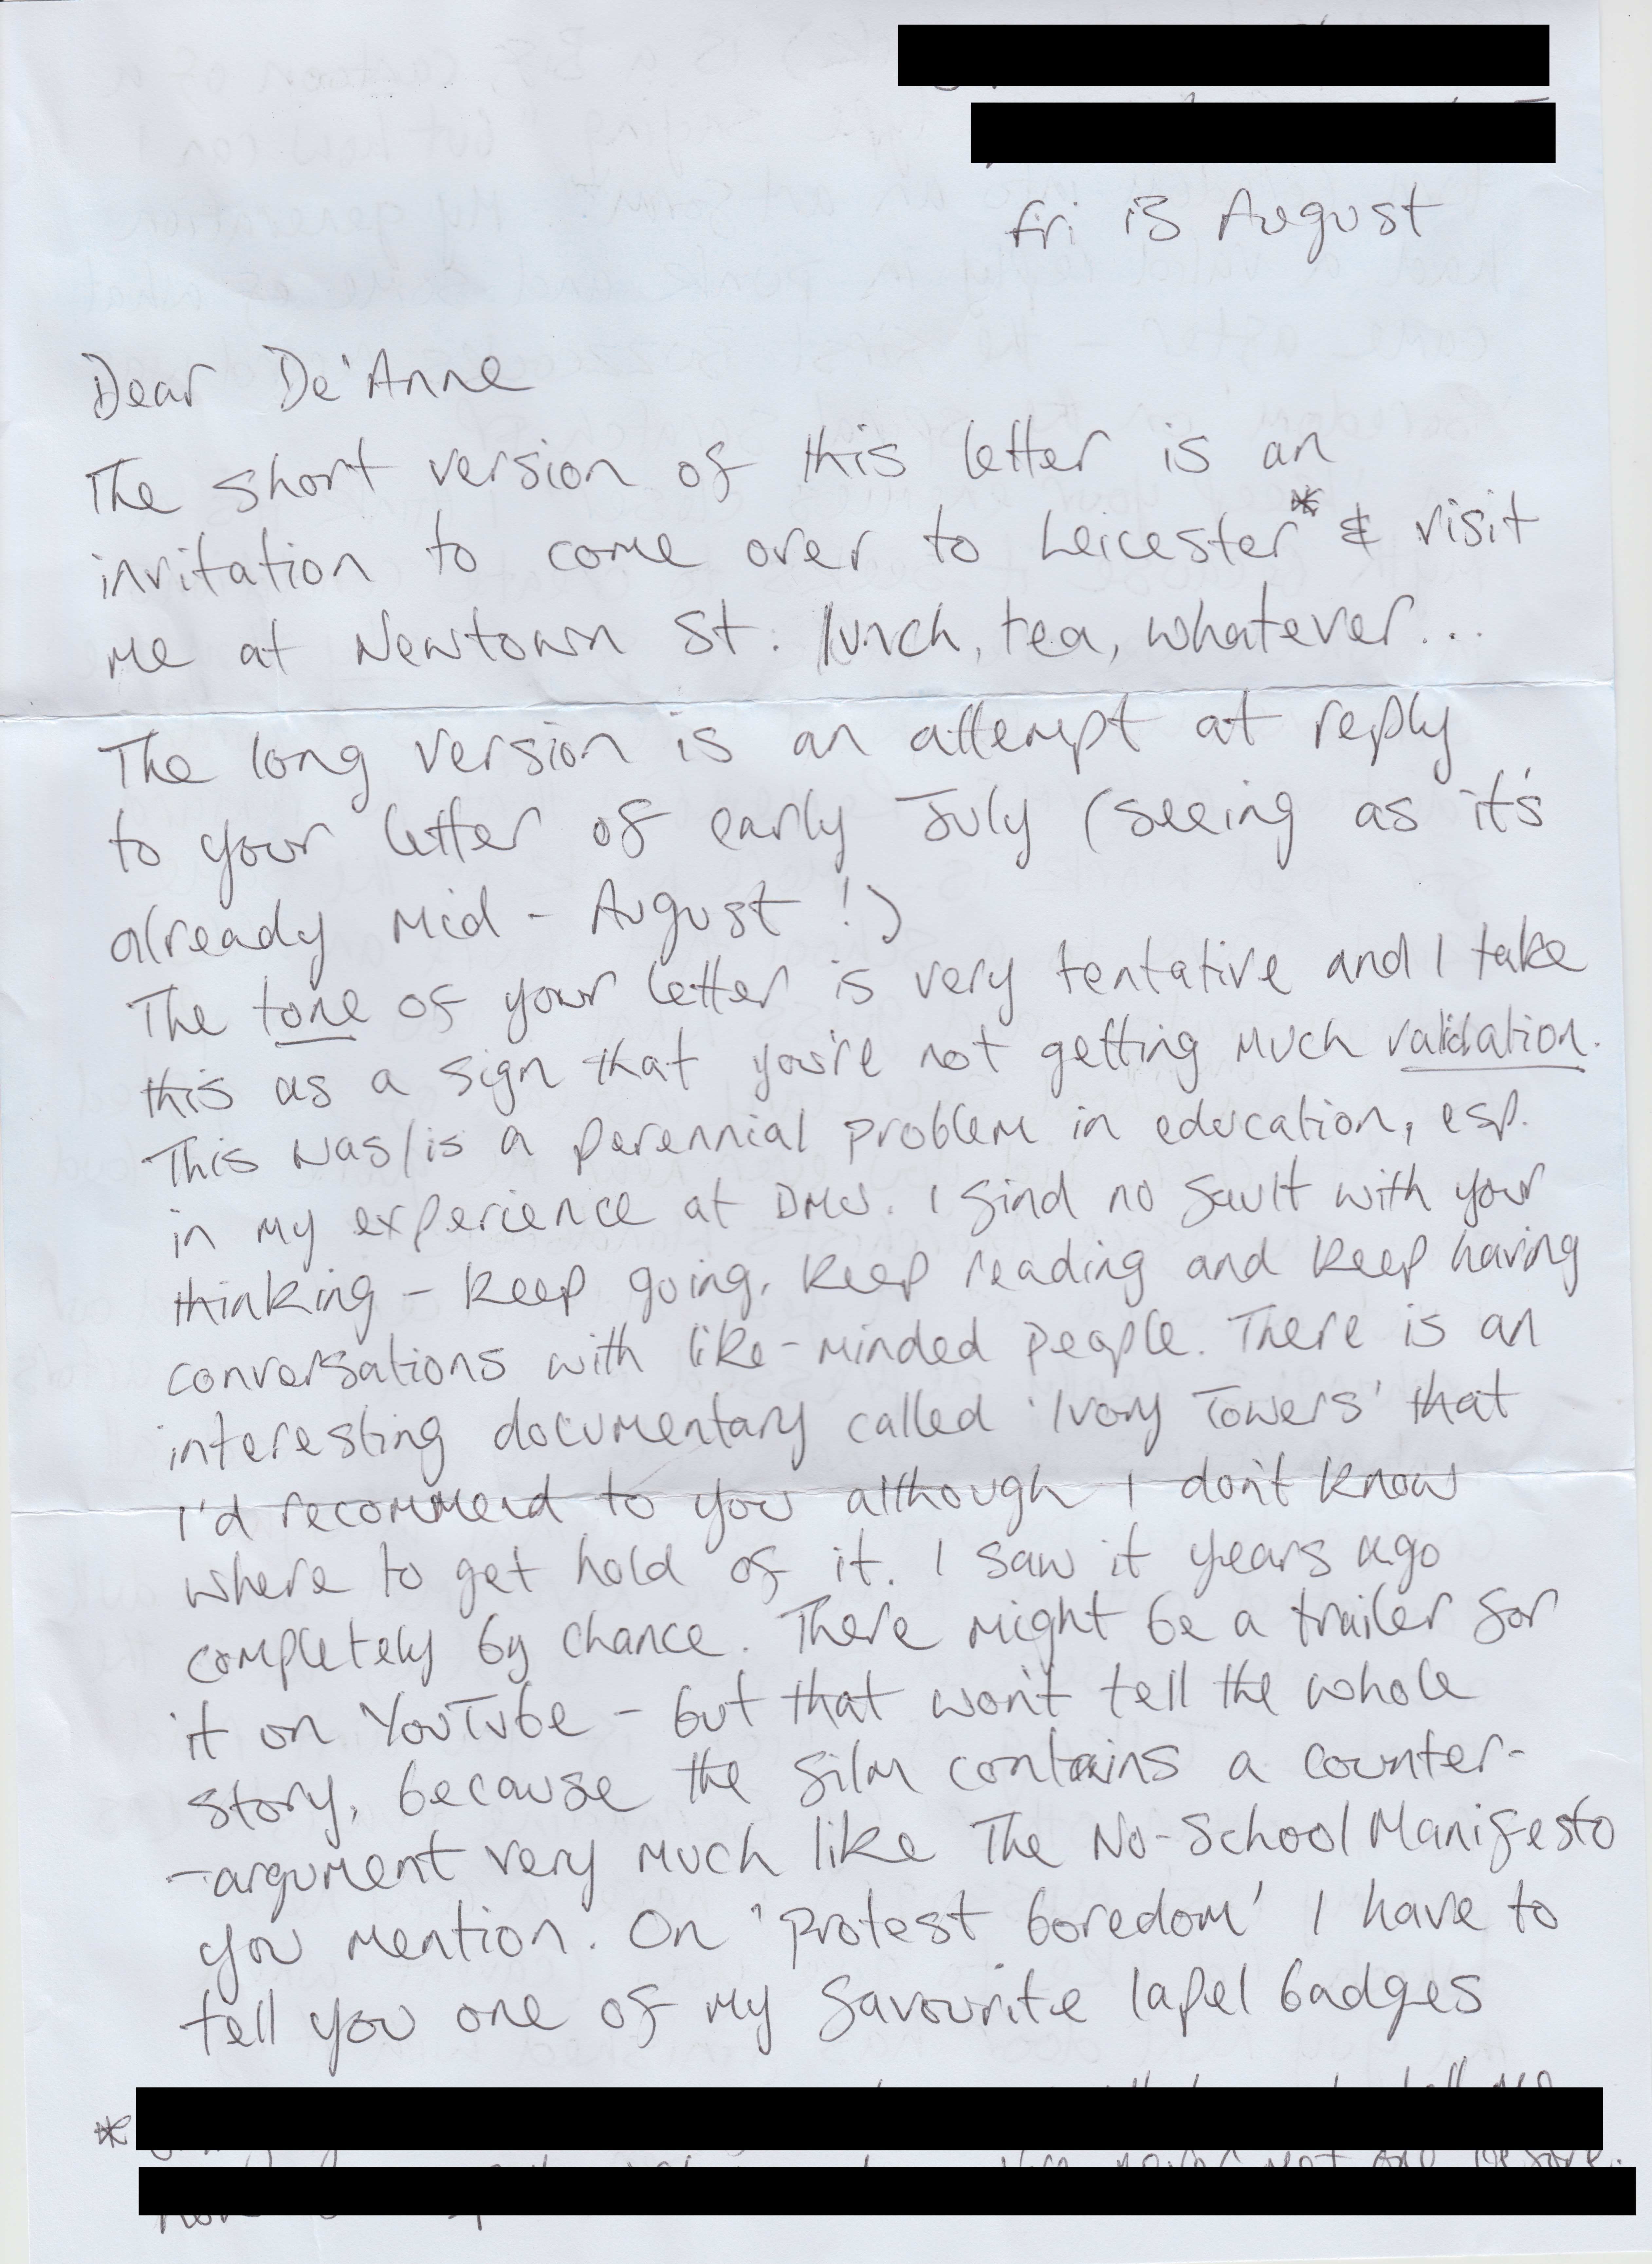 Fri 13 August
Dear De'Anne
The short version of this letter is an
invitation to come over to Leicester* & visit
me at Newtown St. lunch, tea, whatever...
The long version is an attempt at reply
to your letter of early July (seeing as it's
already mid-August!)
The tone of your letter is very tentative and I take
this as a sign that you're not getting much validation.
This was/is a perennial problem in education, esp.
in my experience at DMU. I find no fault with your
thinking - keep going, keep reading and keep having
conversations with like-minded people. There is an
interesting documentary called 'Ivory Towers' that
I'd recommend to you although I don't know
where to get hold of it. I saw it years ago
completely by chance. There might be a trailer for
it on YouTube - but that won't tell the whole
story, because the film contains a counter-
-argument very much like The No-School Manifesto
you mention. On 'protest boredom' I have to
tell you one of my favourite lapel badges
*